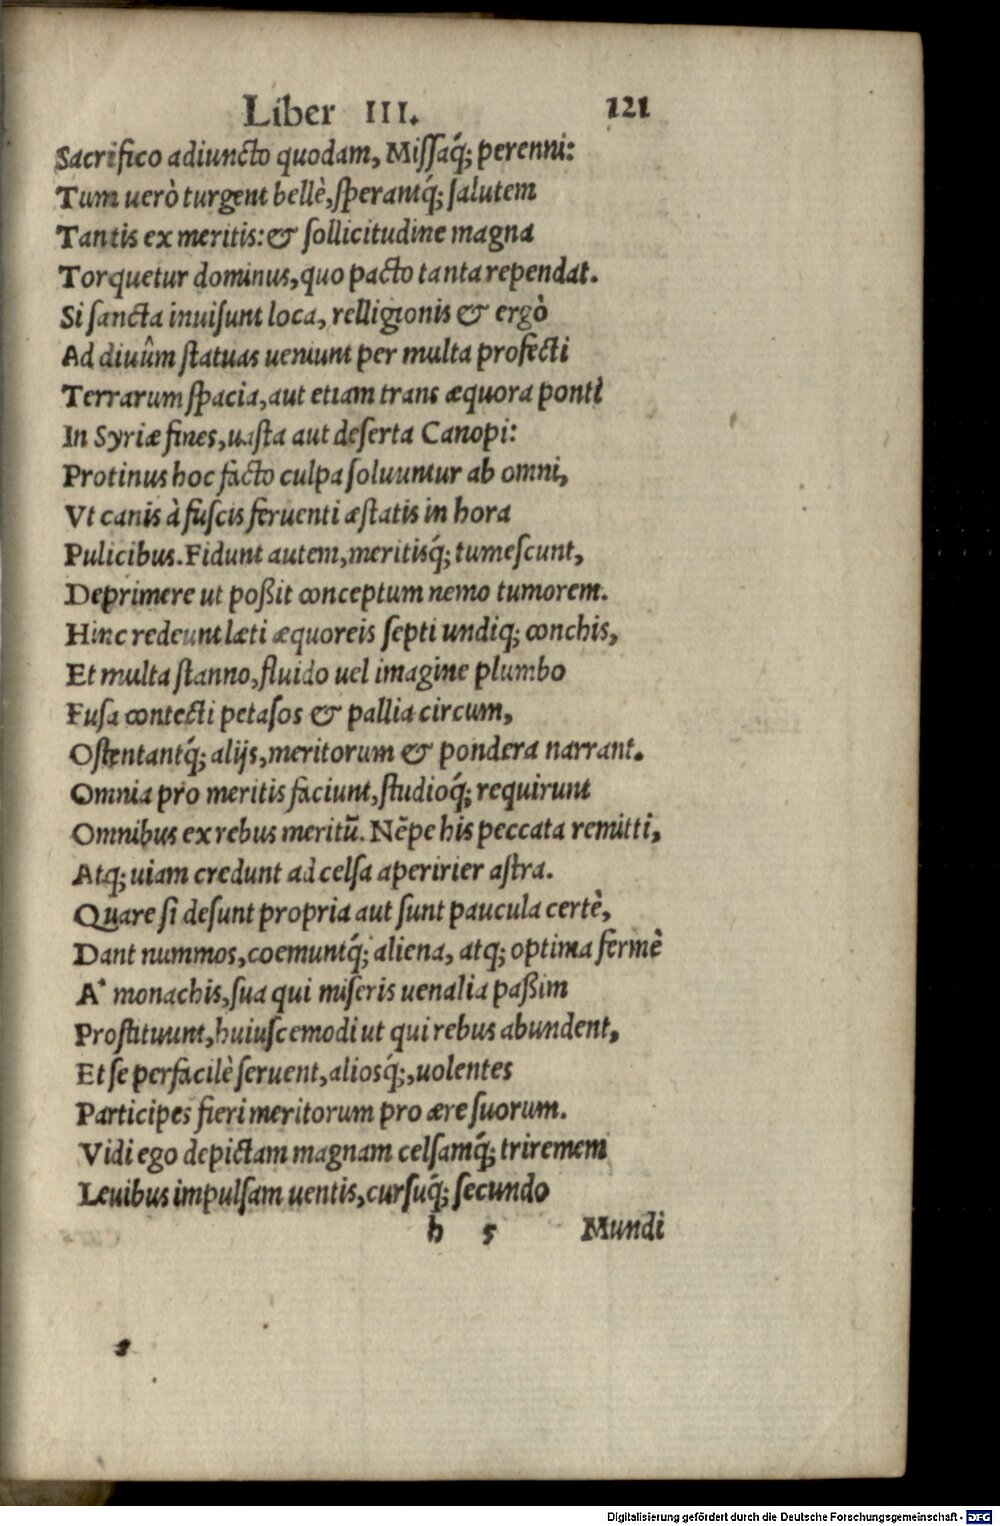 Liber III. 121
Sacrifico adiuncto quodam, Missaq́; perenni:
Tum uerò turgent bellè, sperantq́; salutem
Tantis ex meritis: & sollicitudine magna
Torquetur dominus, quo pacto tanta rependat.
Si sancta inuisunt loca, relligionis & ergò
Ad diuûm statuas ueniunt per multa profecti
Terrarum spacia, aut etiam trans æquora ponti
In Syriæ fines, uasta aut deserta Canopi:
Protinus hoc facto culpa soluuntur ab omni,
Vt canis à fuscis feruenti æstatis in hora
Pulicibus. Fidunt autem, meritisq́; tumescunt,
Deprimere ut poßit conceptum nemo tumorem.
Hinc redeunt læti æquoreis septi undiq; conchis,
Et multa stanno, fluido uel imagine plumbo
Fusa contecti petasos & pallia circum,
Ostentantq́; alijs, meritorum & pondera narrant.
Omnia pro meritis faciunt, studioq́; requirunt
Omnibus ex rebus meritū. Nēpe his peccata remitti,
Atq; uiam credunt ad celsa aperirier astra.
Quare si desunt propria aut sunt paucula certè,
Dant nummos, coemuntq́; aliena, atq; optima fermè
A' monachis, sua qui miseris uenalia paßim
Prostituunt, huiuscemodi ut qui rebus abundent,
Et se perfacilè seruent, aliosq́;, uolentes
Participes fieri meritorum pro ære suorum.
Vidi ego depictam magnam celsamq́; triremem
Leuibus impulsam uentis, cursuq́; secundo
h 5 Mundi
Digitalisierung gefördert durch die Deutsche Forschungsgemeinschaft - DFG